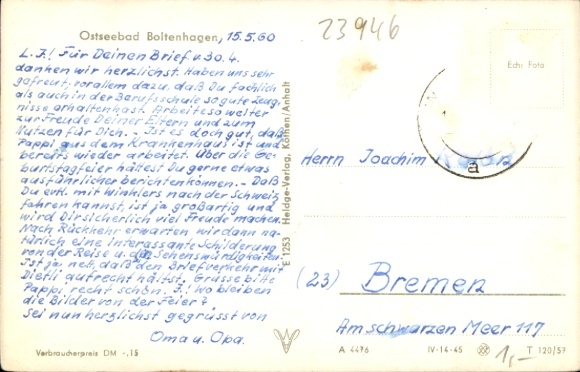 Ostseebad Boltenhagen, 15.5.60
L. J.! Für Deinen Brief v. 30.4.
danken wir herzlichst. Haben uns sehr
gefreut, vor allem dazu, daß Du fachlich
als auch in der Berufsschule so gute Zeug-
nisse erhalten hast. Arbeite so weiter
zur Freude Deiner Eltern und zum
Nutzen für Dich. - Ist es doch gut, daß
Pappi aus dem Krankenhaus ist und
bereits wieder arbeitet. Über die Ge-
burtstagfeier hättest Du gerne etwas
ausführlicher berichten können. - Daß
Du mit Winklers nach der Schweiz
fahren kannst, ist ja großartig und
wird Dir sicherlich viel Freude machen.
Nach Rückkehr erwarten wir dann na-
türlich eine interessante Schilderung
von der Reise u. den Sehenswürdigkeiten.
Ist ja nett, daß den Briefverkehr mit
Dietli aufrecht hältst. Grüsse bitte
Pappi recht schön. J.! wo bleiben
die Bilder von der Feier?
Sei nun herzlichst gegrüsst von
Oma u. Opa.
Verbraucherpreis DM -,15
E 1253 Heldge-Verlag, Köthen/Anhalt
23946
Echt Foto
Herrn Joachim
(23) Bremen
Am schwarzen Meer 117
A 4476 IV-14-45 T 120/59
1,-